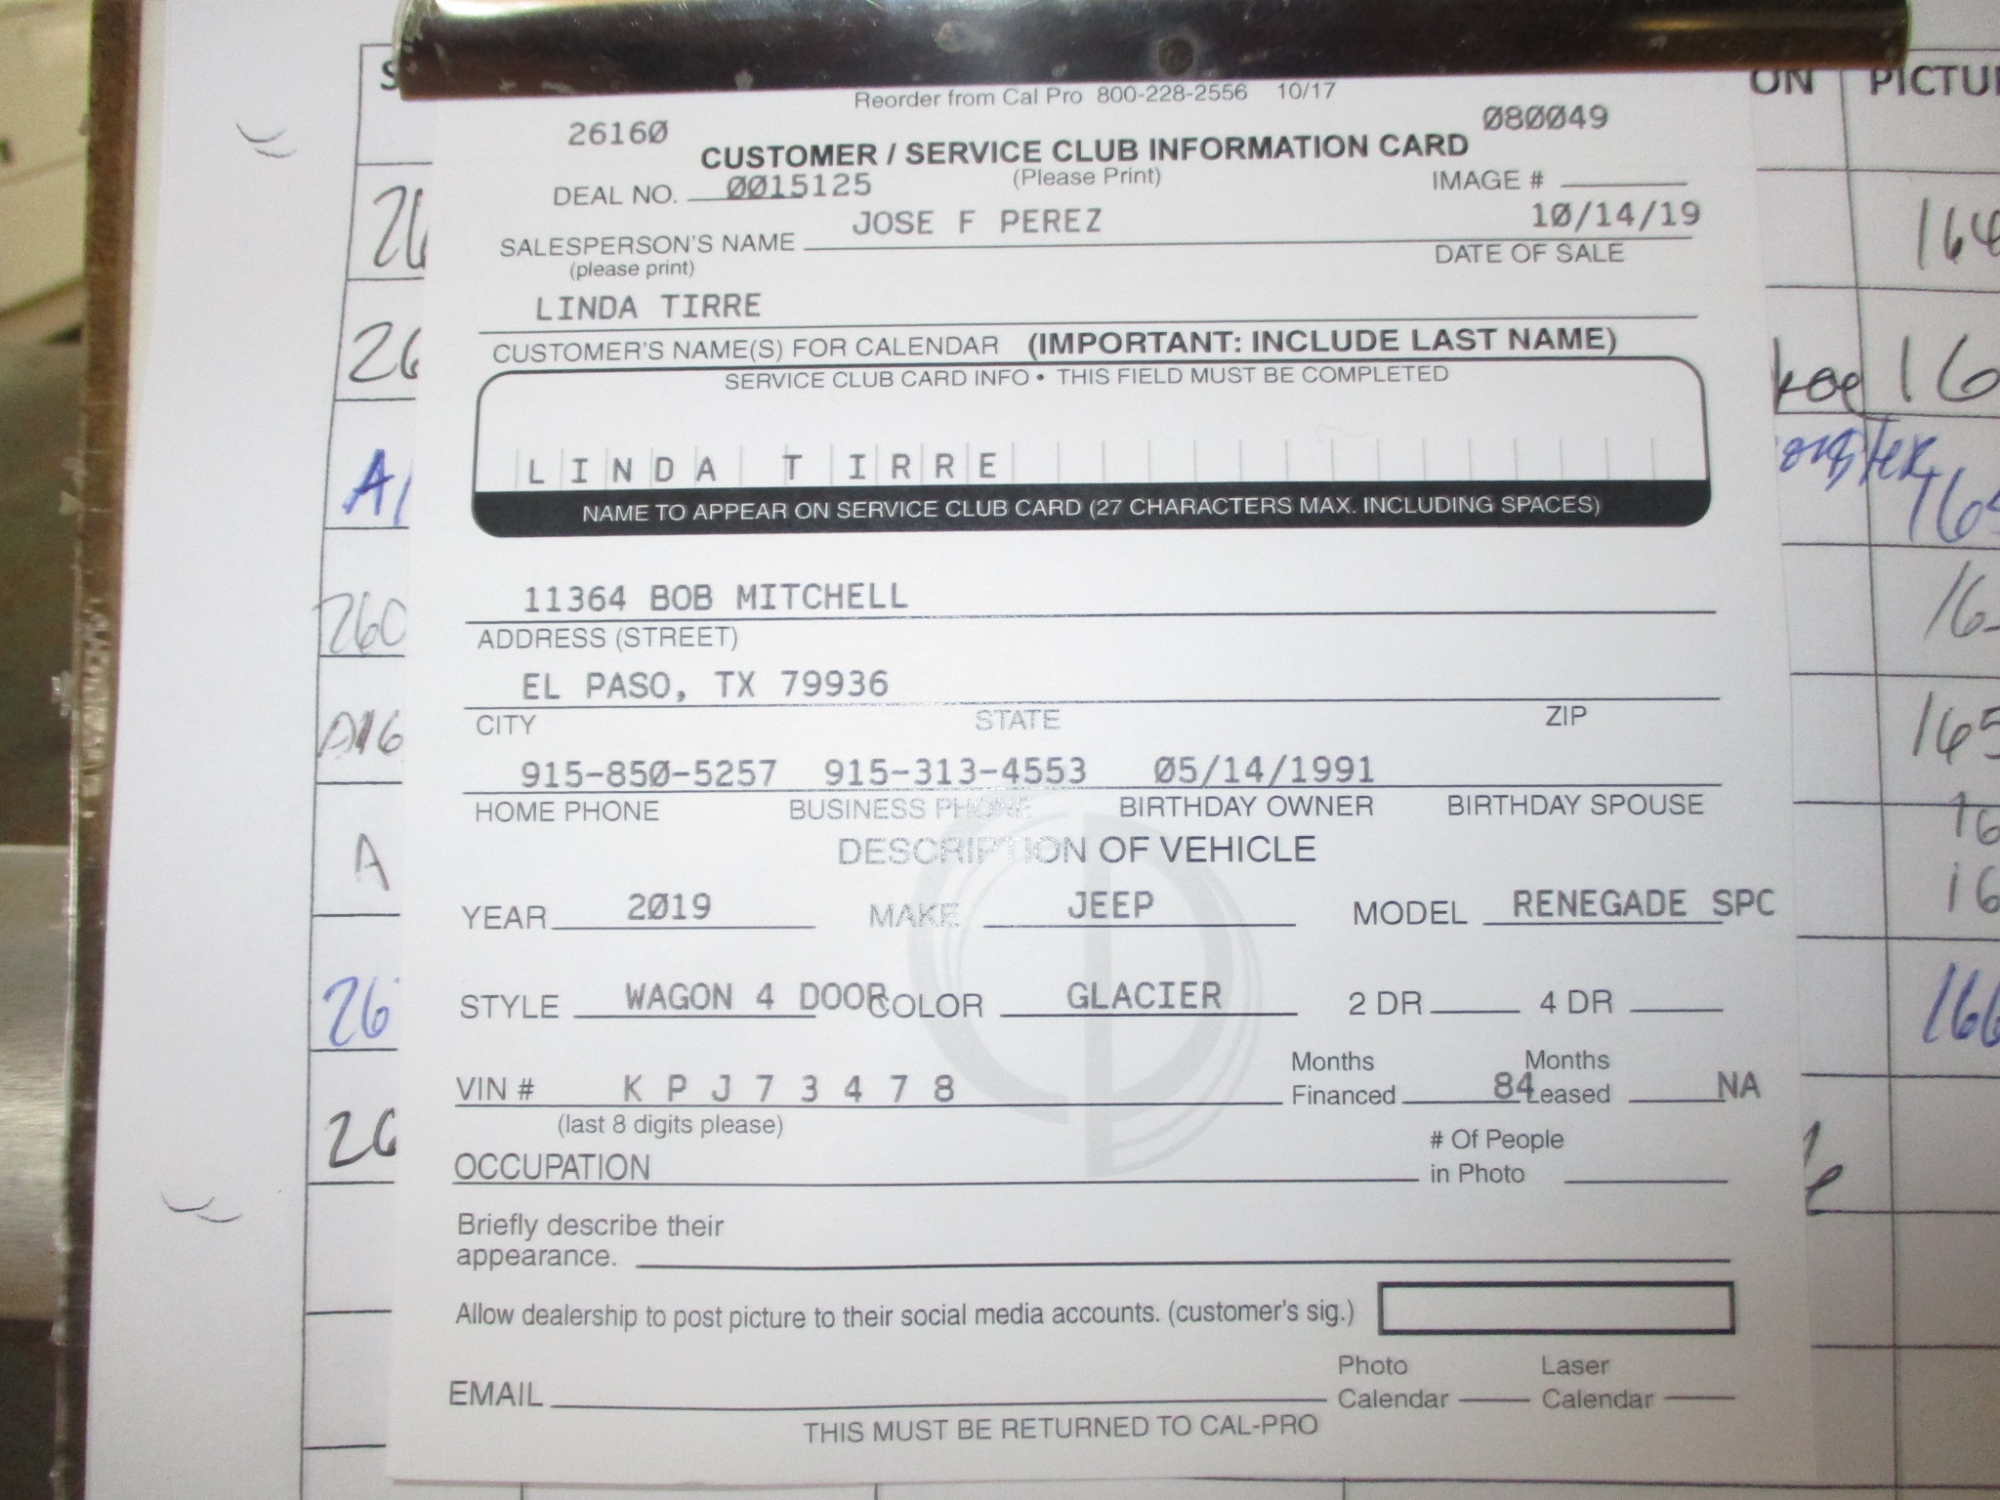 ON PICTU
Reorder from Cal Pro 800-228-2556 10/17
26160 080049
CUSTOMER / SERVICE CLUB INFORMATION CARD
DEAL NO. 0015125 (Please Print) IMAGE #
JOSE F PEREZ 10/14/19
SALESPERSON'S NAME DATE OF SALE
(please print)
LINDA TIRRE
CUSTOMER'S NAME(S) FOR CALENDAR (IMPORTANT: INCLUDE LAST NAME)
SERVICE CLUB CARD INFO • THIS FIELD MUST BE COMPLETED
LINDA TIRRE
NAME TO APPEAR ON SERVICE CLUB CARD (27 CHARACTERS MAX. INCLUDING SPACES)
11364 BOB MITCHELL
ADDRESS (STREET)
EL PASO, TX 79936
CITY STATE ZIP
915-850-5257 915-313-4553 05/14/1991
HOME PHONE BUSINESS PHONE BIRTHDAY OWNER BIRTHDAY SPOUSE
DESCRIPTION OF VEHICLE
YEAR 2019 MAKE JEEP MODEL RENEGADE SPC
STYLE WAGON 4 DOOR COLOR GLACIER 2 DR 4 DR
Months Months
VIN # K P J 7 3 4 7 8 Financed 84 Leased NA
(last 8 digits please)
# Of People
OCCUPATION in Photo
Briefly describe their
appearance.
Allow dealership to post picture to their social media accounts. (customer's sig.)
Photo Laser
EMAIL Calendar Calendar
THIS MUST BE RETURNED TO CAL-PRO